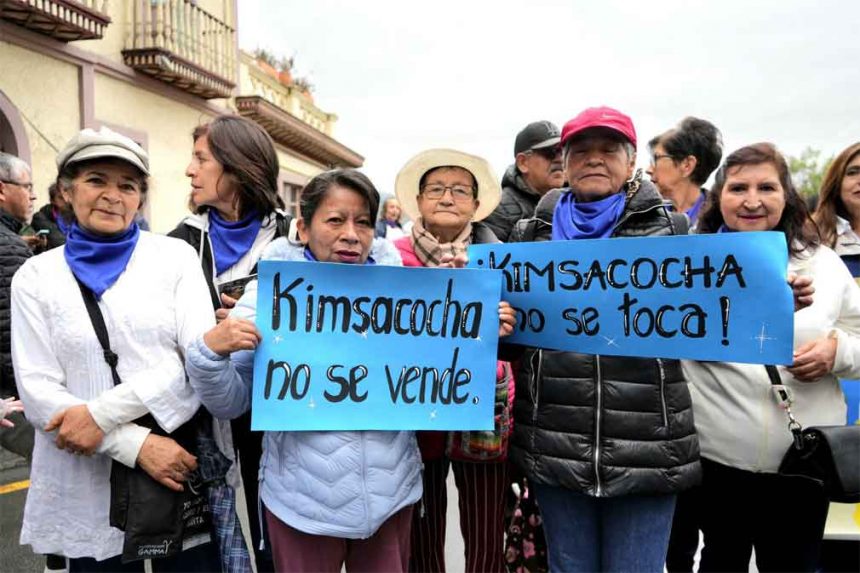 Kimsacocha
no se vende.
¡KIMSACOCHA
no se toca!
GAMMA